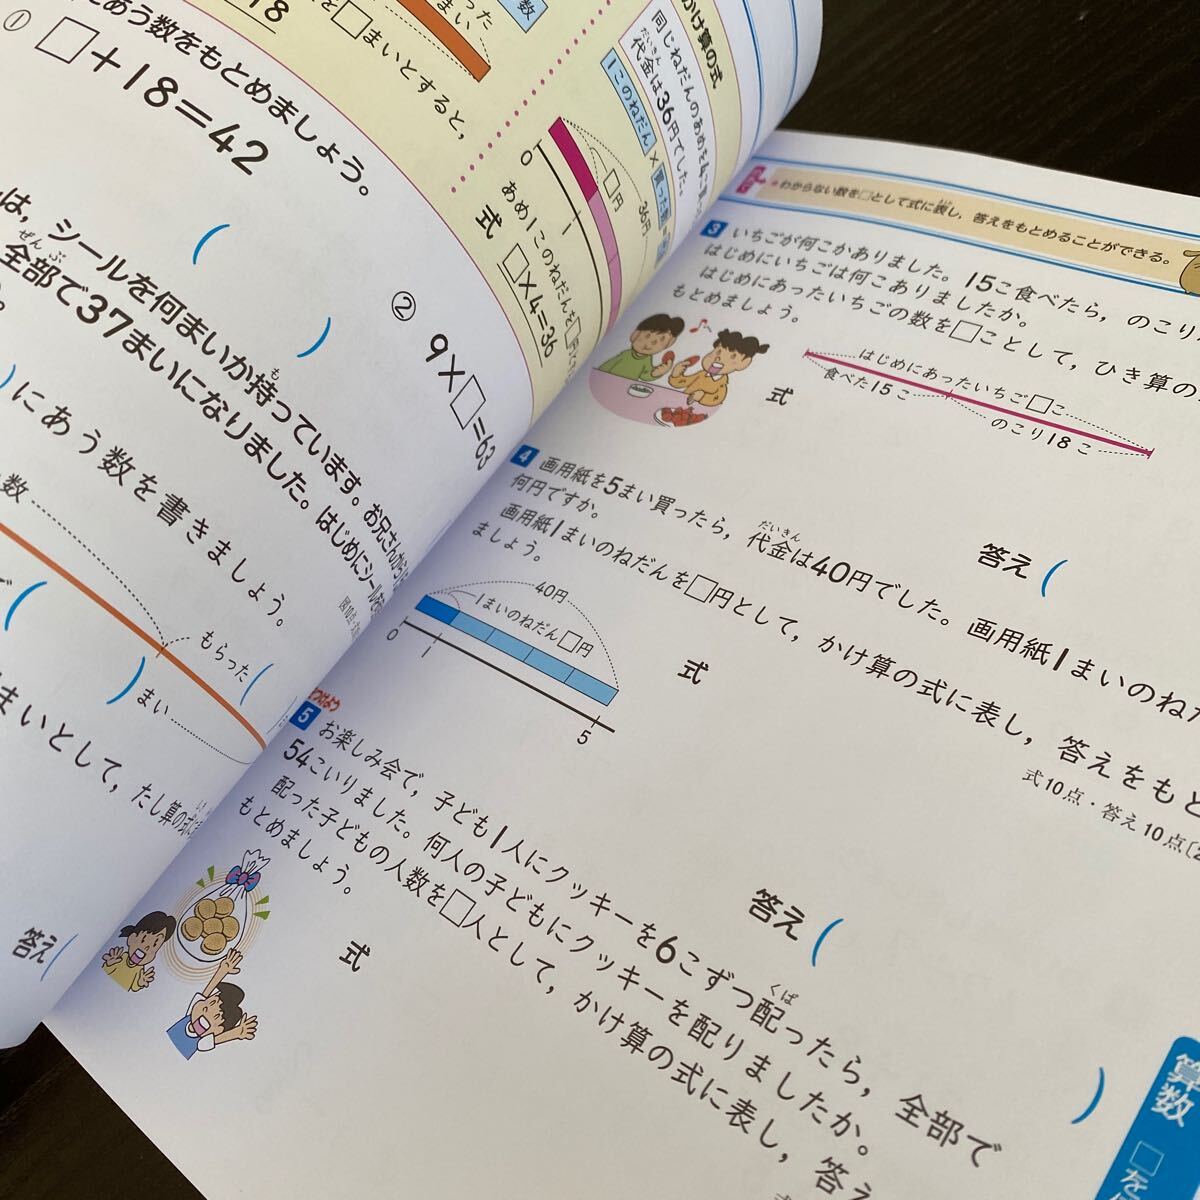 ①
にあう数をもとめましょう。
□+18=42
②
9×□=63
シールを何まいか持っています。お兄さんから
全部で37まいになりました。はじめにシールを
にあう数を書きましょう。
もらった
まい
まいとして，たし算の式に
答え
まいとすると，
かけ算の式
同じねだんのあめを4
代金は36円でした。
1このねだん
×
買った数
□円
36円
0
1
あめ1このねだんを□
式
□×4=36
わからない数を□として式に表し，答えをもとめることができる。
3 いちごが何こかありました。15こ食べたら，のこり
はじめにいちごは何こありましたか。
はじめにあったいちごの数を□ことして，ひき算の
もとめましょう。
はじめにあったいちご□こ
食べた15こ
のこり18こ
式
答え
4 画用紙を5まい買ったら，代金は40円でした。画用紙1まいのねだ
何円ですか。
画用紙1まいのねだんを□円として，かけ算の式に表し，答えをもと
ましょう。
式10点・答え10点
40円
1まいのねだん□円
0
1
5
式
答え
5 お楽しみ会で，子ども1人にクッキーを6こずつ配ったら，全部で
54こいりました。何人の子どもにクッキーを配りましたか。
配った子どもの人数を□人として，かけ算の式に表し，答
もとめましょう。
式
算数
□を